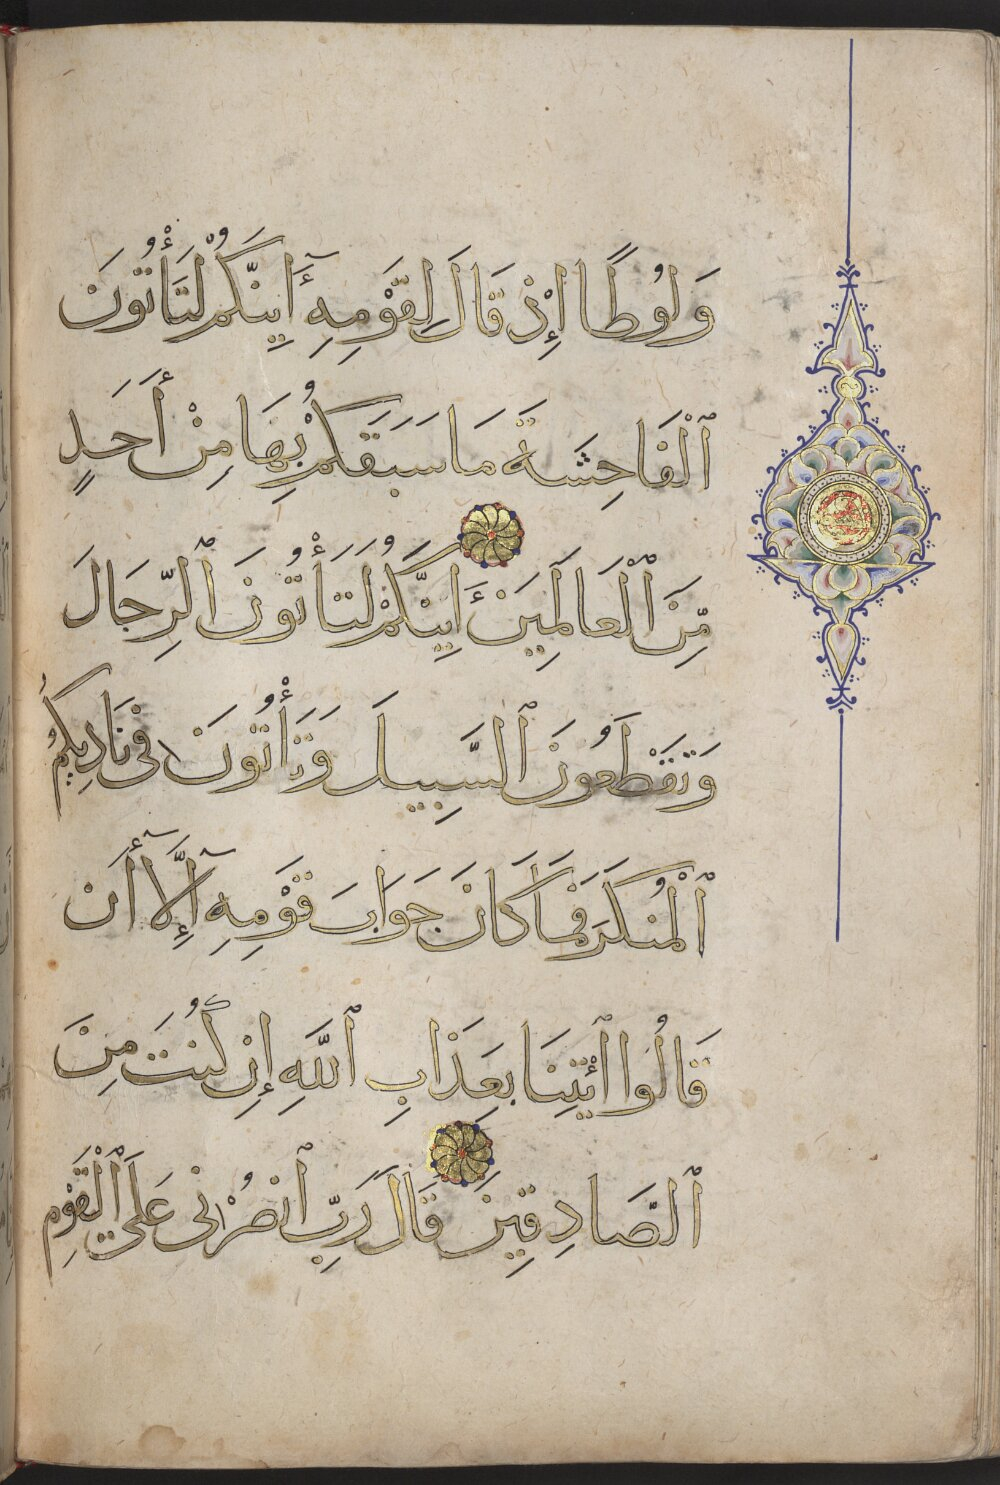 وَلُوطًا إِذْ قَالَ لِقَوْمِهِٓ أَىِٕنَّكُمْ لَتَأْتُونَ
ٱلْفَاحِشَةَ مَا سَبَقَكُمْ بِهَا مِنْ أَحَدٍ
مِّنَ ٱلْعَالَمِينَ أَىِٕنَّكُمْ لَتَأْتُونَ ٱلرِّجَالَ
وَتَقْطَعُونَ ٱلسَّبِيلَ وَتَأْتُونَ فِى نَادِيكُمُ
ٱلْمُنْكَرَ فَمَا كَانَ جَوَابَ قَوْمِهِٓ إِلَّآ أَن
قَالُوا ٱئْتِنَا بِعَذَابِ ٱللَّهِ إِن كُنْتَ مِنَ
ٱلصَّادِقِينَ قَالَ رَبِّ ٱنصُرْنِى عَلَى ٱلْقَوْمِ